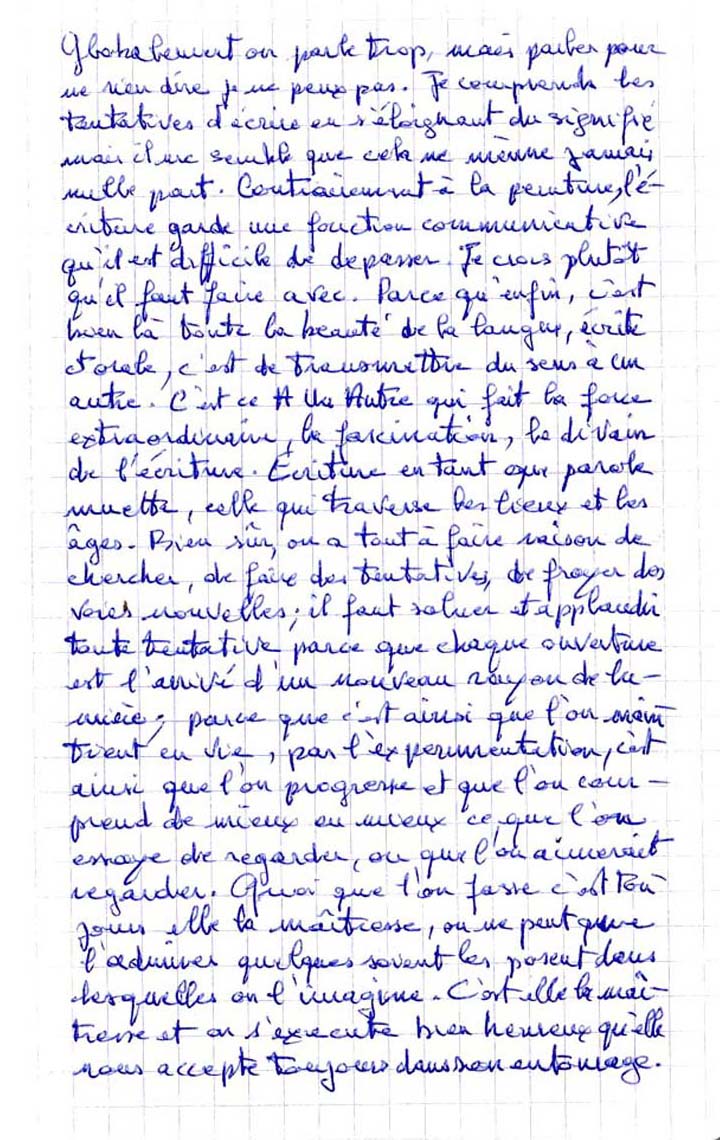 Globalement on parle trop, mais parler pour
ne rien dire je ne peux pas. Je comprends les
tentatives d'écrire en s'éloignant du signifié
mais il me semble que cela ne mènne jamais
nulle part. Contrairement à la peinture, l'é-
criture garde une fonction communicative
qu'il est difficile de depasser. Je crois plutôt
qu'il faut faire avec. Parce qu'enfin, c'est
bien là toute la beauté de la langue, écrite
et orale, c'est de transmettre du sens à un
autre. C'est ce A Un Autre qui fait la force
extraordinaire, la fascination, le divain
de l'écriture. Écriture en tant que parole
muette, celle qui traverse les lieux et les
âges. Bien sûr, on a tout à faire raison de
chercher, de faire des tentatives, de frayer des
voies nouvelles; il faut saluer et applaudir
toute tentative parce que chaque ouverture
est l'arrivé d'un nouveau rayon de lu-
mière; parce que c'est ainsi que l'on main
tient en vie, par l'expérimentation, c'est
ainsi que l'on progresse et que l'on com-
prend de mieux en mieux ce que l'on
essaye de regarder, ou que l'on aimerait
regarder. Quoi que l'on fasse c'est tou
jours elle la maîtresse, on ne peut que
l'admirer quelques soient les posent dans
lesquelles on l'imagine. C'est elle la maî-
tresse et on s'execute bien heureux qu'elle
nous accepte toujours dans son entourage.